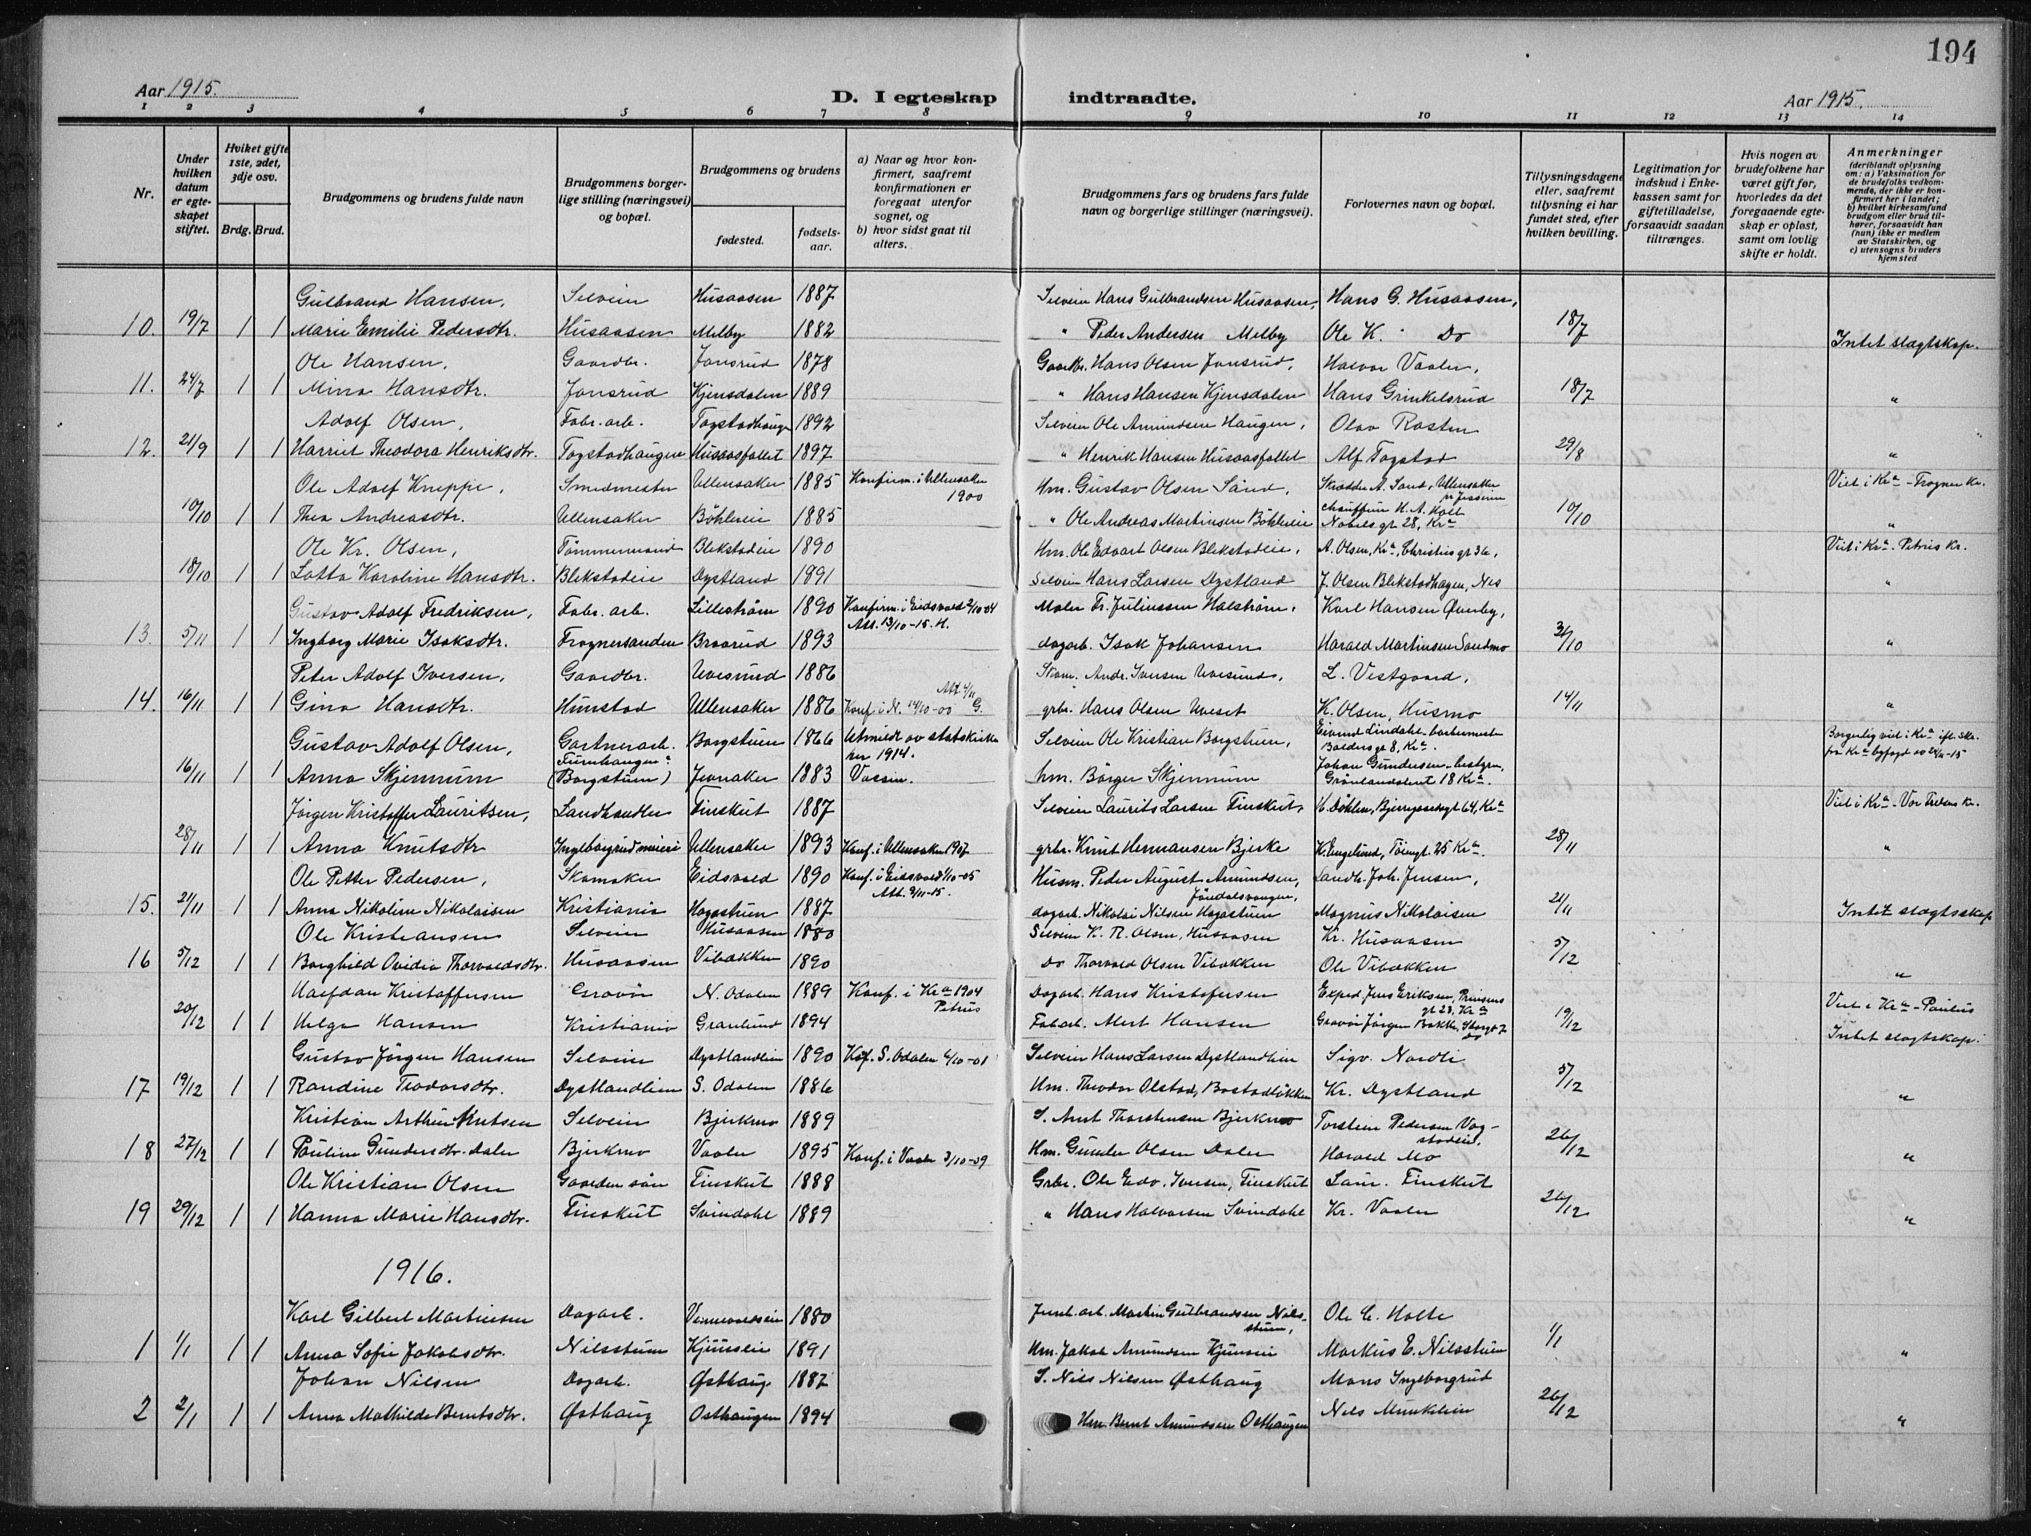 194
Aar 1915.
D. I egteskap indtraadte.
Aar 1915.
1 2 3 4 5 6 7 8 9 10 11 12 13 14
Nr.
Under hvilken datum er egteskapet stiftet.
Hviket gifte 1ste, 2det, 3dje osv.
Brdg. Brud.
Brudgommens og brudens fulde navn
Brudgommens borgerlige stilling (næringsvei) og bopæl.
Brudgommens og brudens
fødested.
fødselsaar.
a) Naar og hvor konfirmert, saafremt konfirmationen er foregaat utenfor sognet, og
b) hvor sidst gaat til alters.
Brudgommens fars og brudens fars fulde navn og borgerlige stillinger (næringsvei).
Forlovernes navn og bopæl.
Tillysningsdagene eller, saafremt tillysning ei har fundet sted, efter hvilken bevilling.
Legitimation for indskud i Enkekassen samt for giftetilladelse, forsaavidt saadan tiltrænges.
Hvis nogen av brudefolkene har været gift før, hvorledes da det foregaaende egteskap er opløst, samt om lovlig skifte er holdt.
Anmerkninger
(deriblandt oplysning om: a) Vaksination for de brudefolks vedkommende, der ikke er konfirmert her i landet; b) hvilket kirkesamfund brudgom eller brud tilhører, forsaavidt han (hun) ikke er medlem av Statskirken, og c) utensogns bruders hjemsted
Gulbrand Hansen, Selveier Husaasen 1887 Selveier Hans Gulbrandsen Husaasen, Hans G. Husaasen,
10. 19/7 1 1 Marie Emilie Pedersdtr. Husaasen Melby 1882 " Peder Andersen Melby Ole K. Do 18/7 Intet slagtskap.
Ole Hansen, Gaardbr. Jonsrud 1878 Gaardbr. Hans Olsen Jonsrud, Halvor Vaaler,
11. 24/7 1 1 Mina Hansdtr. Jonsrud Kjensdalen 1889 " Hans Hansen Kjensdalen Hans Grinkelsrud 18/7 "
Adolf Olsen, Fabr. arb. Togstadhaugen 1892 Selveier Ole Amundsen Haugen, Olav Rasten
12. 21/9 1 1 Harriet Theodora Henriksdtr. Togstadhaugen Husaasfallet 1897 " Henrik Hansen Husaasfallet Alf Togstad 29/8 "
Ole Adolf Kneppe, Smedmester Ullensaker 1885 Konfirm. i Ullensaker 1900 Hm. Gustav Olsen Sand, Skrædder A. Sand, Ullensaker pr Jessheim Viet i Kra - Frogner Kr.
10/10 1 1 Thea Andreasdtr. Ullensaker Böhlereie 1885 " Ole Andreas Martinsen Böhlereie chauffeur H. A. Holt Nobels gt 28, Kra 10/10 "
Ole Kr. Olsen, Tömmermand Blekstadeie 1890 Hm. Ole Edvart Olsen Blekstadeie, A. Olsen, Kra, Christies gt 36, Viet i Kra - Petrus Kr.
18/10 1 1 Lotta Karoline Hansdtr. Blekstadeie Dystland 1891 Selveier Hans Larsen Dystland J. Olsen Blekstadhagen, Nes "
Gustav Adolf Fredriksen, Fabr. arb. Lilleström 1890 Konfirm. i Eidsvold 2/10-04 Maler Fr. Juliussen Halström, Karl Hansen Ørneby,
Att. 13/10-15. H.
13. 5/11 1 1 Ingborg Marie Isaksdtr. Frognersanden Braarud 1893 dagarb. Isak Johansen Harald Martinsen Sandmo 31/10 "
Peter Adolf Iversen, Gaardbr. Uvesund 1886 Skom. Andr. Iversen Uvesund, L. Vestgaard,
14. 16/11 1 1 Gina Hansdtr. Hunstad Ullensaker 1886 Konf. i N. 14/10-00 Att. 4/11 G. grbr. Hans Olsen Uveset K. Olsen, Husmo 14/11 "
Gustav Adolf Olsen, Gartnerarb. Borgstuen 1866 Utmeldt av statskirken 1914. Selveier Ole Kristian Borgstuen, Eivind Lindahl - barbermester Balders gt 8, Kra. Borgerlig viet i Kra ifl. Skr. fra Kra byfogd av 24/11-15
16/11 1 1 Anna Skjennum (Borgstuen) Jevnaker 1883 Vaccin. hm. Börger Skjennum Johan Gundersen - bestyrer, Grönlandsleret 18 Kra.
Jörgen Kristoffer Lauritsen, Landhandler Finskut 1887 Selveier Laurits Larsen Finskut, H. Döhlen, Bjerregaardsgt 64, Kra Viet i Kra - Vor Frelsers Kr.
28/11 1 1 Anna Knutsdtr Ingeborgrud meieri Ullensaker 1893 Konf. i Ullensaker 1907 grbr. Knut Hermansen Bjerke K. Engelund, Töiengt. 25 Kra. 28/11 "
Ole Petter Pedersen, Skomaker Eidsvold 1890 Konf. i Eidsvold 1/10-05 Husm. Peder August Amundsen, Landh. Joh. Jensen,
Att. 3/11-15. Jöndalsvangen,
15. 21/11 1 1 Anna Nikoline Nikolaisen Kristiania Hagastuen 1887 dagarb. Nikolai Nilsen Hagastuen Magnus Nikolaisen 21/11 Intet slagtsskap
Ole Kristiansen Selveier Husaasen 1880 Selveier K. R. Olsen, Husaasen Kr. Husaasen
16 5/12 1 1 Borghild Ovidia Thorvaldsdtr. Husaasen Vibakken 1890 Do Thorvald Olsen Vibakken Ole Vibakken 5/12 "
Halfdan Kristoffersen Gravör N. Odalen 1889 Konf. i Kra 1904 Petrus Dagarb. Hans Kristofersen Exped. Jens Eriksen, Prinsens gt 23, Kra Viet i Kra - Paulus
20/12 1 1 Helga Hansen Kristiania Granlund 1894 Fabarb. Alert Hansen Gravör Jörgen Bakke, Storgt 7 do 19/12 Intet slagtskap.
Gustav Jörgen Hansen Selveier Dystlandlien 1890 Kof. S. Odalen 6/10-01 Selveier Hans Larsen Dystlandlien Sigv. Nordli
17 19/12 1 1 Randine Teodorsdtr. Dystlandlien S. Odalen 1886 Hm. Theodor Olstad, Bostadløkken Kr. Dystland 5/12 "
Kristian Arthur Arntsen Selveier Bjerkmo 1889 S. Arnt Thorstensen Bjerkmo Torstein Pedersen Vogstadeie.
18 27/12 1 1 Pauline Gundersdtr. Daler Bjerkmo Vaaler 1895 Konf. i Vaaler 3/10-09 Hm. Gunder Olsen Daler Harald Mo 26/12 "
Ole Kristian Olsen Gaardersön Finskut 1888 Grbr. Ole Edv. Iversen, Finskut Laur. Finskut
19 29/12 1 1 Hanna Marie Hansdtr. Finskut Svindahl 1889 " Hans Halvorsen Svindahl Kr. Vaaler 26/12 "
1916.
Karl Gilbert Martinsen Dagarb. Vennevoldseie 1880 Jernb. arb. Martin Gulbrandsen Nilsstuen, Ole C. Holte
1 1/1 1 1 Anna Sofie Jakobsdtr. Nilsstuen Kjuuseie 1891 Hm. Jakob Amundsen Kjuuseie Markus E. Nilsstuen 1/1 "
Johan Nilsen Dagarb. Østhaug 1887 S. Nils Nilsen Østhaug Mons Ingeborgrud
2 2/1 1 1 Anna Mathilde Berntsdtr. Østhaug Osthaugen 1894 Hm. Bernt Amundsen Osthaugen Nils Munkelien 26/12 "